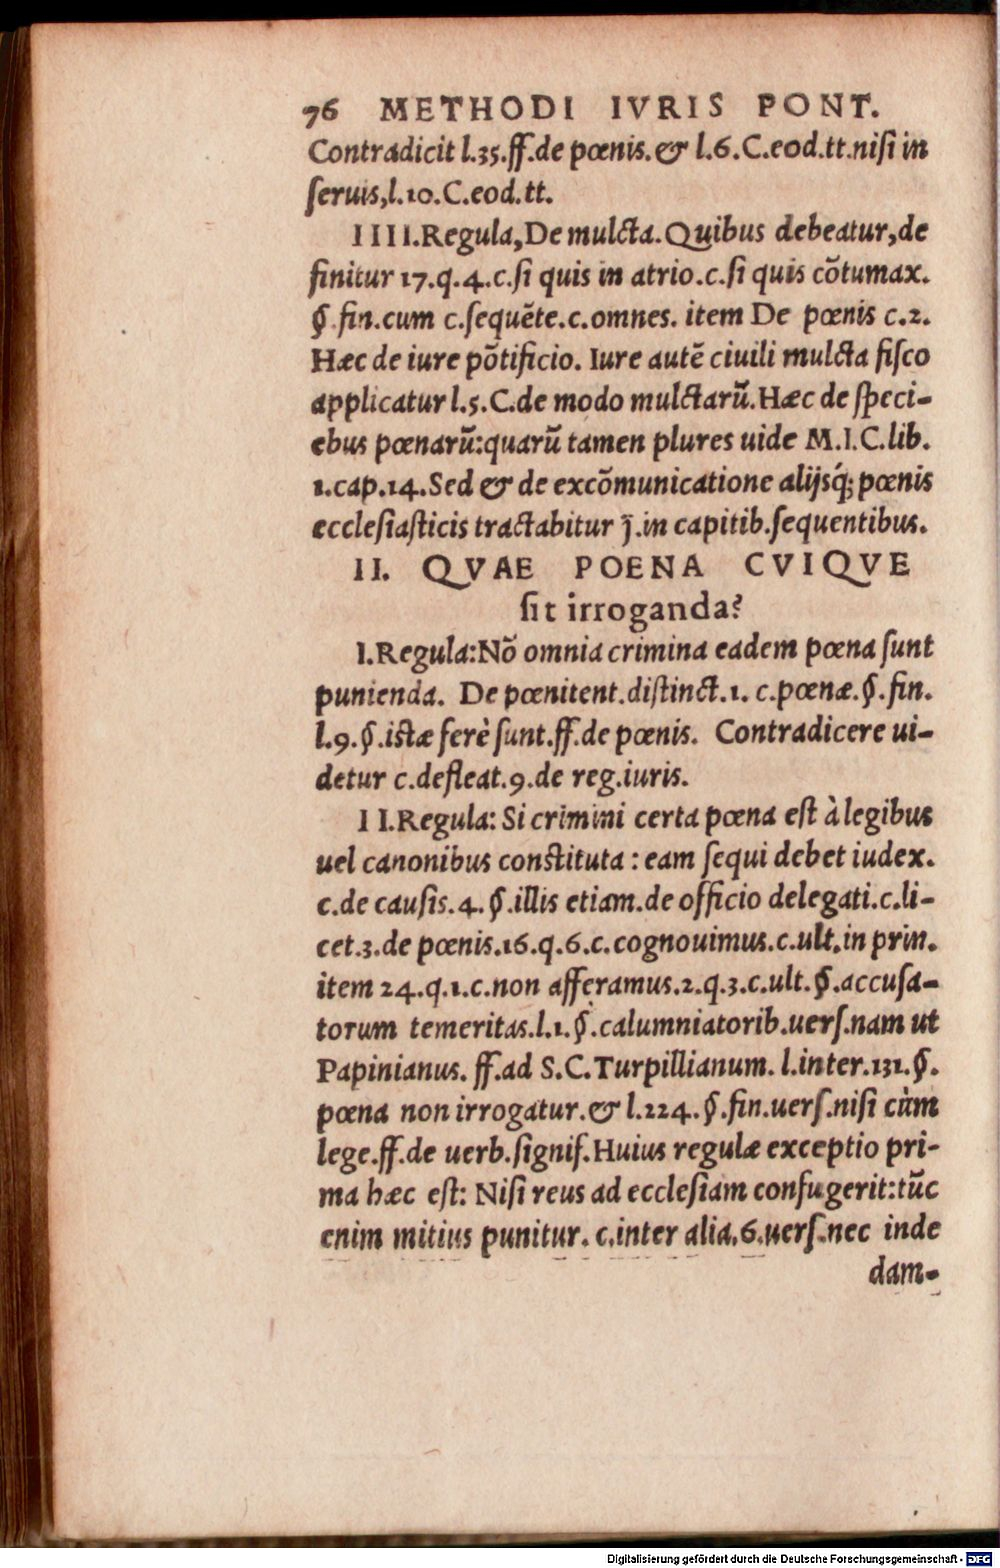 76 METHODI IVRIS PONT.
Contradicit l.35.ff.de pœnis.& l.6.C.eod.tt.niſi in
ſeruis,l.10.C.eod.tt.
IIII.Regula,De mulcta.Quibus debeatur,de
finitur 17.q.4.c.ſi quis in atrio.c.ſi quis cōtumax.
§.fin.cum c.ſequēte.c.omnes. item De pœnis c.2.
Hæc de iure pōtificio. Iure autē ciuili mulcta fiſco
applicatur l.5.C.de modo mulctarū.Hæc de ſpeci-
ebus pœnarū:quarū tamen plures uide M.I.C.lib.
1.cap.14.Sed & de excōmunicatione alijsq́; pœnis
eccleſiaſticis tractabitur j̄.in capitib.ſequentibus.
II. QVAE POENA CVIQVE
ſit irroganda?
I.Regula:Nō omnia crimina eadem pœna ſunt
punienda. De pœnitent.diſtinct.1. c.pœnæ.§.fin.
l.9.§.istæ ferè ſunt.ff.de pœnis. Contradicere ui-
detur c.defleat.9.de reg.iuris.
II.Regula: Si crimini certa pœna eſt à legibus
uel canonibus conſtituta : eam ſequi debet iudex.
c.de cauſis.4.§.illis etiam.de officio delegati.c.li-
cet.3.de pœnis.16.q.6.c.cognouimus.c.ult.in prin.
item 24.q.1.c.non afferamus.2.q.3.c.ult.§.accuſa-
torum temeritas.l.1.§.calumniatorib.uerſ.nam ut
Papinianus. ff.ad S.C.Turpillianum. l.inter.131.§.
pœna non irrogatur.& l.224.§.fin.uerſ.niſi cùm
lege.ff.de uerb.ſignif.Huius regulæ exceptio pri-
ma hæc eſt: Niſi reus ad eccleſiam confugerit:tūc
enim mitius punitur. c.inter alia.6.uerſ.nec inde
dam-
Digitalisierung gefördert durch die Deutsche Forschungsgemeinschaft - DFG